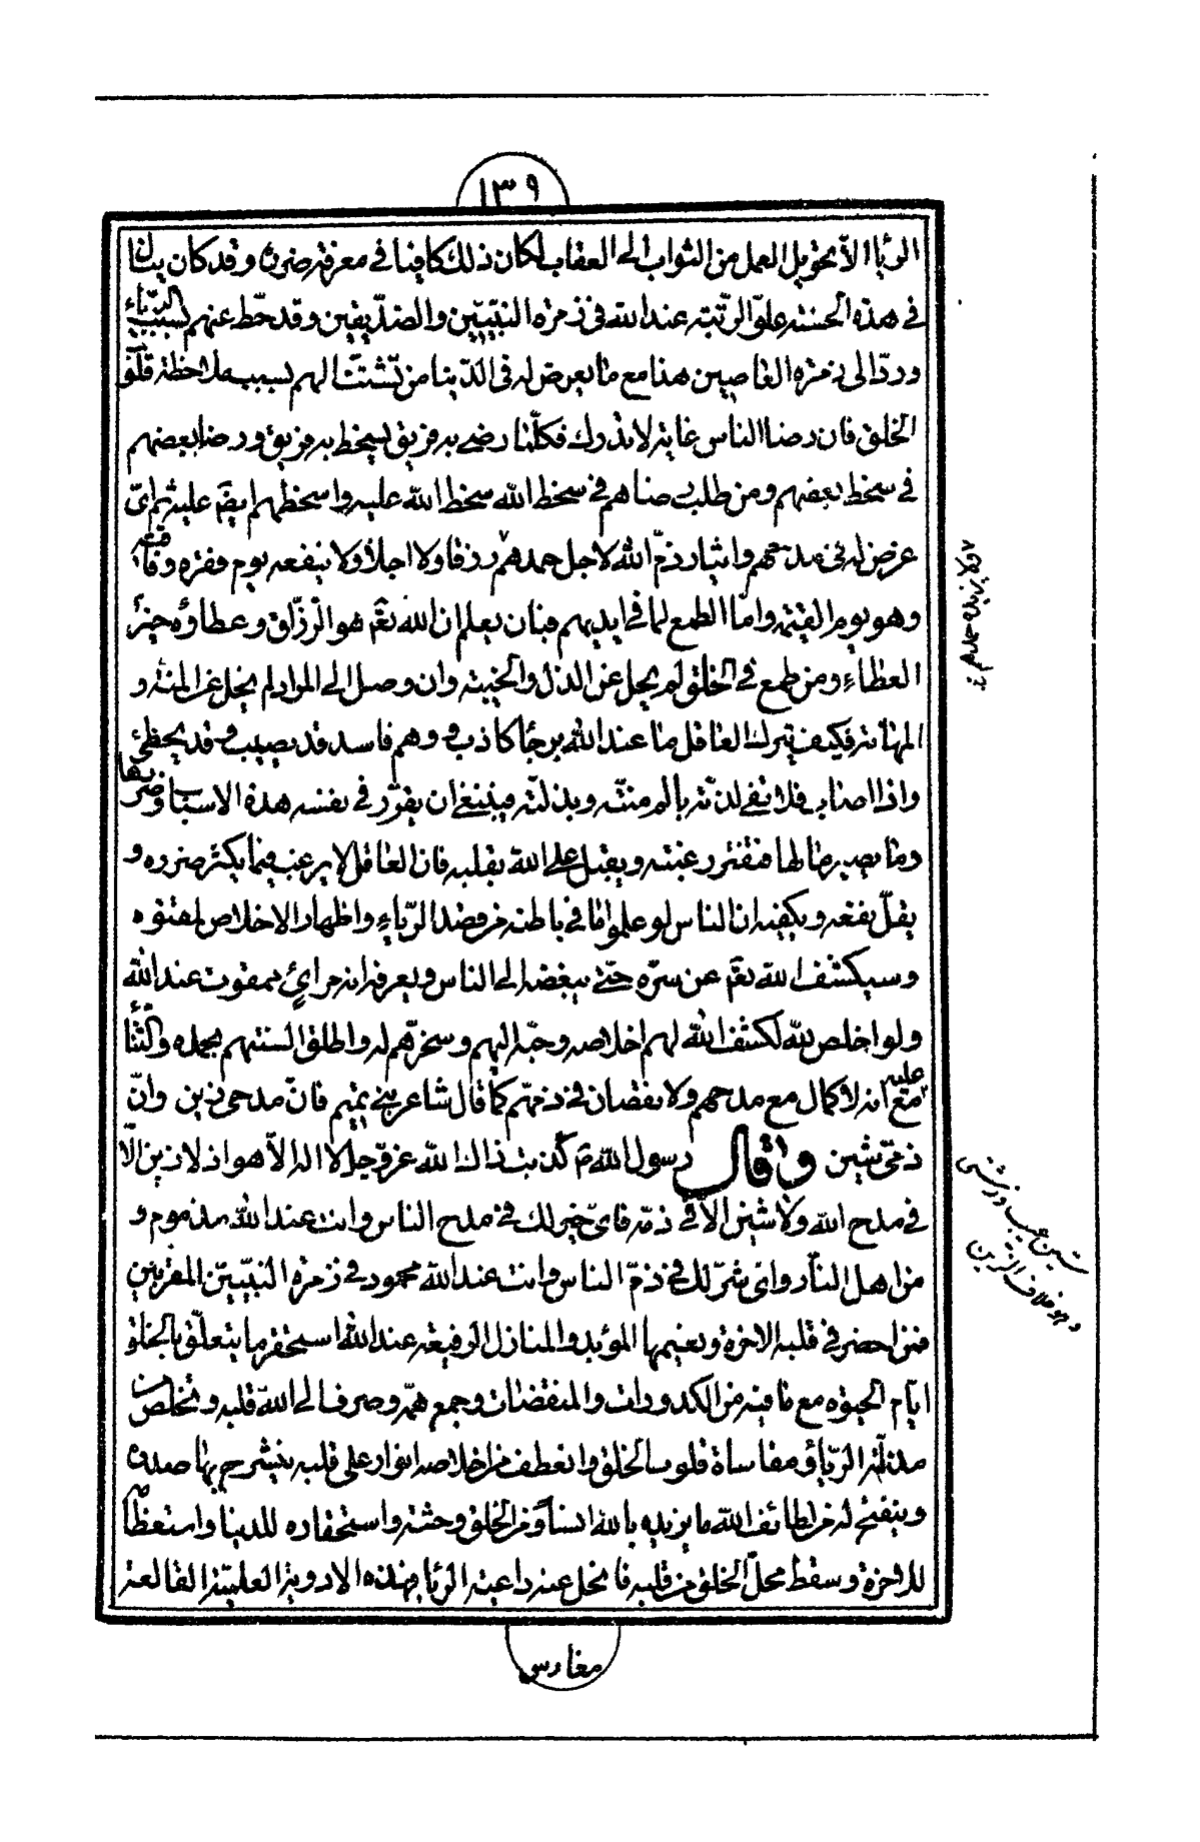 ١٣٩
الريا الّا تحويل العمل من الثواب الى العقاب لكان ذلك كافيا في معرفة ضرره وقد كان ينال
في هذه الحسنة علوّ الرّتبة عند اللّه في زمرة النبيّيّن والصّدّيقين وقد حطّ عنهم بسبب الريّاء
وردّ الى زمرة العاصين هذا مع ما يعرض له في الدّنيا من تشتّت الهم بسبب ملاحظة قلوب
الخلق فان رضا الناس غاية لا تدرك فكلّما رضى به فريق يسخط به فريق ورضا بعضهم
في سخط بعضهم ومن طلب رضاهم في سخط اللّه سخط اللّه عليه واسخطهم ايضً عليه ثم اىّ
غرض له في مدحهم وايثار ذمّ اللّه لاجل حمدهم رزقا ولا اجلا ولا ينفعه يوم فقره وفاقته
وهو يوم القيمة وامّا الطمع لما في ايديهم فبان يعلم ان اللّه تعٓ هو الرّزّاق وعطاؤه خير
العطاء ومن طمع في الخلق لم يخل عن الذلّ والخيبة وان وصل الى المراد لم يخل عن المنّة و
المهانة فكيف يترك العاقل ما عند اللّه برجا كاذب ووهم فاسد قد يصيب وقد يخطئ
واذا اصاب فلا تفى لذّته بالم منّته وبذلته فينبغى ان يقرّر في نفسه هذه الاسباب وضررها
وما يصير مالها فتفتر رغبته ويقبل على اللّه بقلبه فان العاقل لا يرغب فيما يكثر ضرره و
يقلّ نفعه ويكفيه ان الناس لو علموا ما في باطنه من قصد الرّياء واظهار الاخلاص لمقتوه
وسيكشف اللّه تعٓ عن سرّه حتّى يبغضه الى الناس ويعرف انه مرائ ممقوت عند اللّه
ولو اخلص للّه لكشف اللّه لهم اخلاصه وحبّبه اليهم وسخرّهم له واطلق السنتهم بحمده والثّنا
عليه
مع انه لا كمال مع مدحهم ولا نقصان في ذمّهم كما قال شاعر بنى تميم فانّ مدحى زين وانّ
ذمّى شين وقال رسول اللّه صٓ كذبت ذاك اللّه عزّ وجل لا اله الّا هو اذ لا زين الّا
في مدح اللّه ولا شين الّا في ذمّه فاىّ خير لك في مدح الناس وانت عند اللّه مذموم و
من اهل النار واىّ شرّ لك في ذمّ الناس وانت عند اللّه محمود في زمرة النبيّيّن المقربين
فمن احضر في قلبه الاخرة ونعيمها المؤبد والمنازل الرفيعة عند اللّه استحقر ما يتعلّق بالخلق
ايّام الحيٰوة مع ما فيه من الكدورات والمنغصات وجمع همّه وصرف الى اللّه قلبه وتخلص من
مذلّة الرّيا ومقاساة قلوب الخلق وانعطف من اخلاصه انوار على قلبه ينشرح بها صدره
وينفتح له من لطائف اللّه ما يزيده باللّه انسًا ومن الخلق وحشة واستحقاره للدنيا واستعظامًا
للاخرة وسقط محلّ الخلق من قلبه فانحل عنه داعية الريا فهذه الادوية العلميّة القالعة
مغارس
ولا يزيده حمدهم
شين عيب وزشتى
وهو خلاف الزين